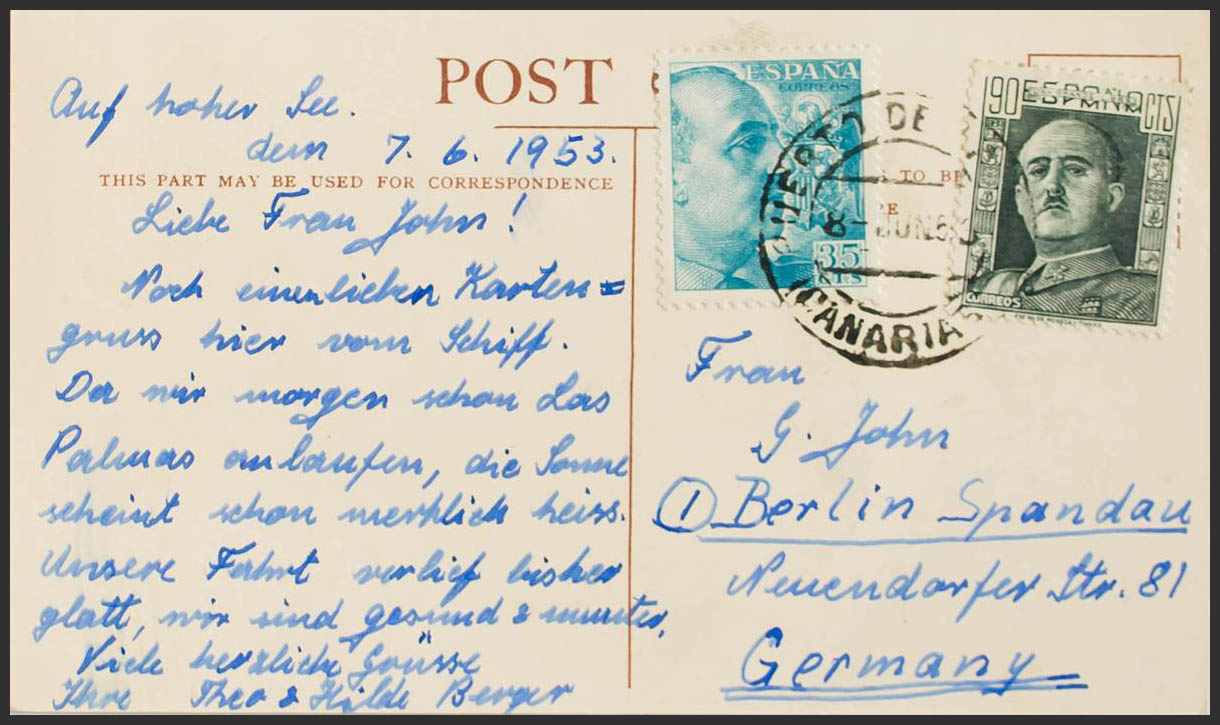 POST
Auf hoher See.
dem 7. 6. 1953.
THIS PART MAY BE USED FOR CORRESPONDENCE
Liebe Frau John!
Noch einen lieben Karten=
gruss hier vom Schiff.
Da wir morgen schon Las
Palmas anlaufen, die Sonne
scheint schon merklich heiss.
Unsere Fahrt verlief bisher
glatt, wir sind gesund & munter.
Viele herzliche Grüsse
Ihre Theo & Hilde Berger
ESPAÑA
CORREOS
35
CTS
PUERTO DE
8 JUN 53
CANARIA
TO BE
RE
90 ESPAÑA CTS
CORREOS
Frau
G. John
① Berlin Spandau
Neuendorfer Str. 81
Germany